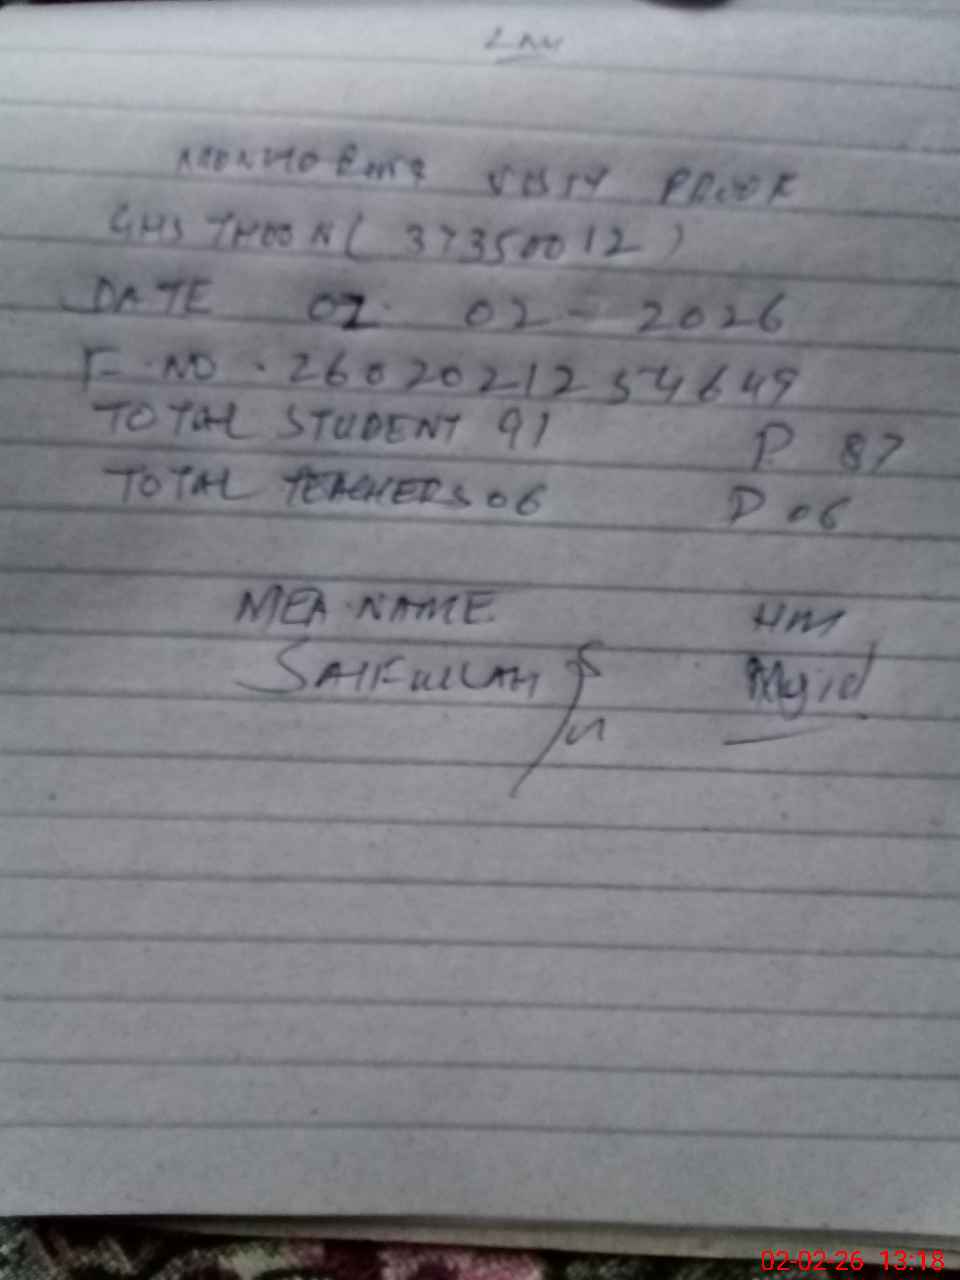 VISIT PROOF
GHS THOON ( 37350012 )
DATE 02 02 - 2026
F. NO . 26020212554649
TOTAL STUDENT 91 P 87
TOTAL TEACHERS 06 P 06
MEA. NAME HM
SAIFULLAH Majid
02-02-26 13:18